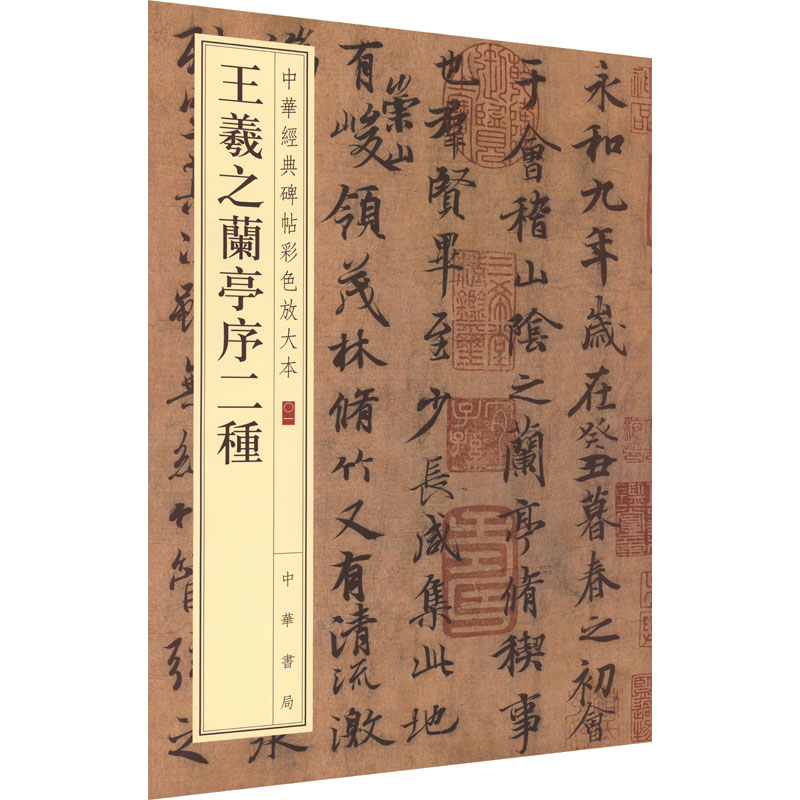 永和九年歲在癸丑暮春之初會
于會稽山陰之蘭亭脩稧事
也群賢畢至少長咸集此地
有崇山峻領茂林脩竹又有清流激
中華經典碑帖彩色放大本 〇一
中華書局
王羲之蘭亭序二種
三希堂精鑑璽
宜子孫